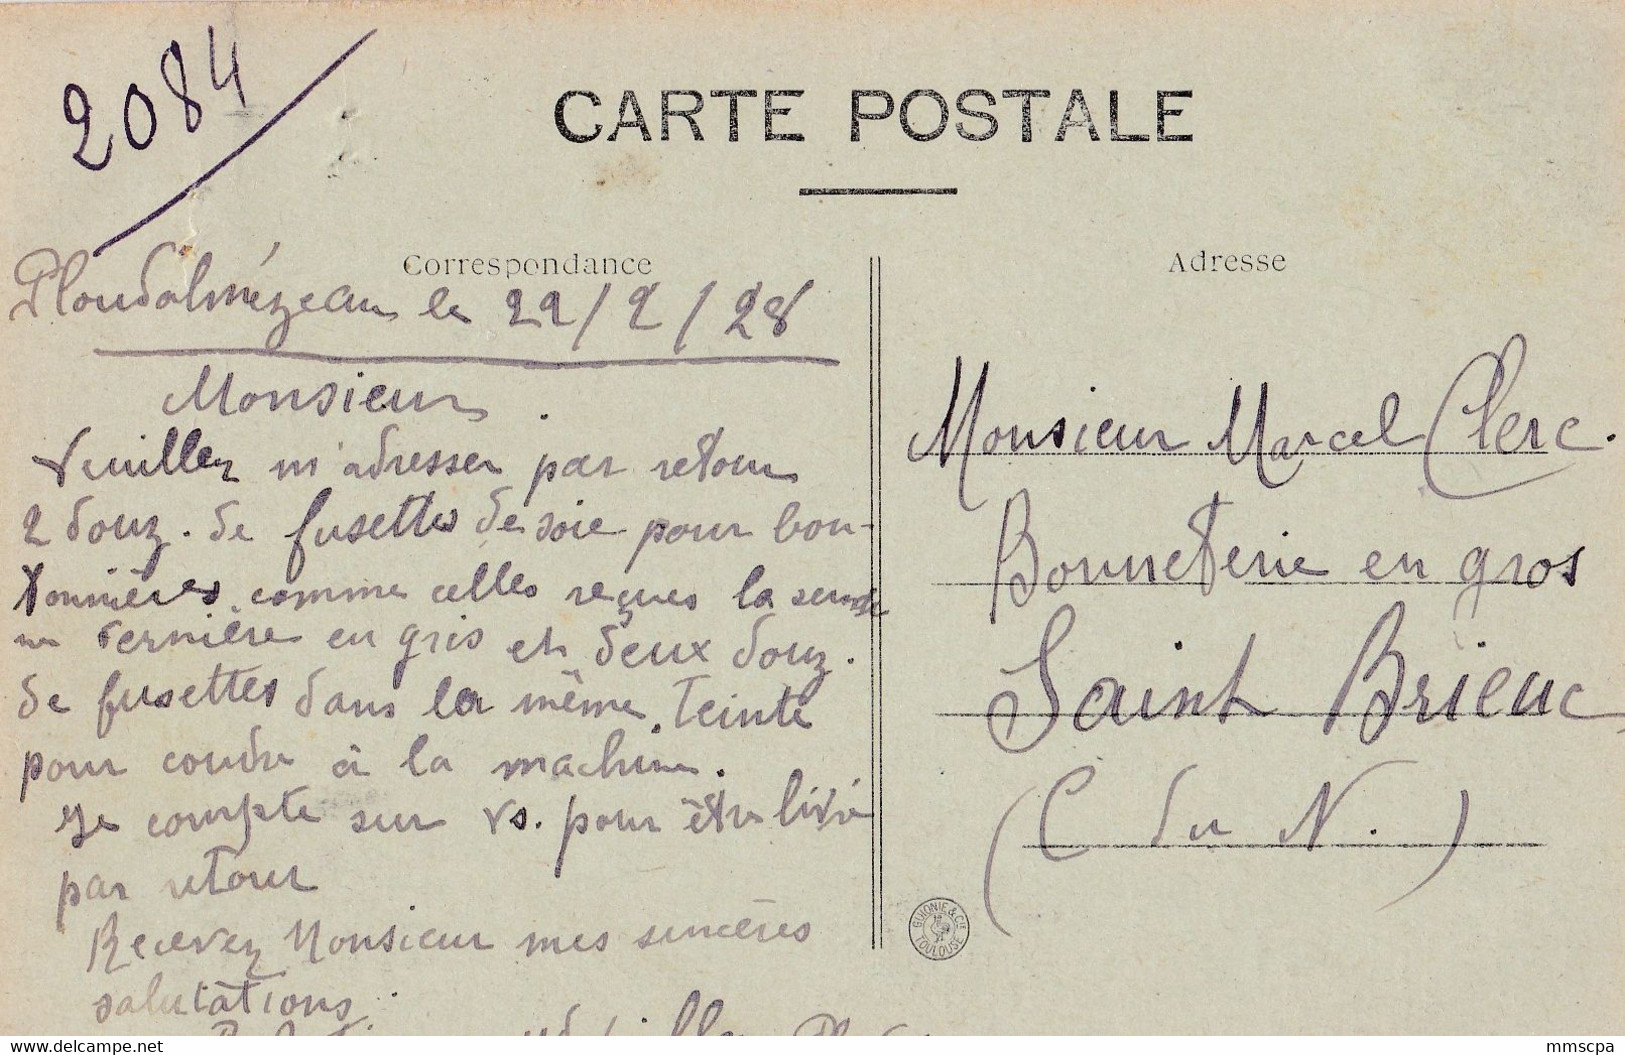 2084
CARTE POSTALE
Correspondance
Ploudalmézeau le 22/2/28
Monsieur.
Veuillez m'adresser par retour
2 douz. de fusettes de soie pour bou-
tonnières, comme celles reçues la semai
ne dernière en gris et deux douz.
de fusettes dans la même teinte
pour coudre à la machine.
Je compte sur vs. pour être livré
par retour
Recevez Monsieur mes sincères
salutations.
Adresse
Monsieur Marcel Clerc.
Bonneterie en gros
Saint Brieuc
(C du N.)
GUIONIE & Cie TOULOUSE
www.delcampe.net
mmscpa